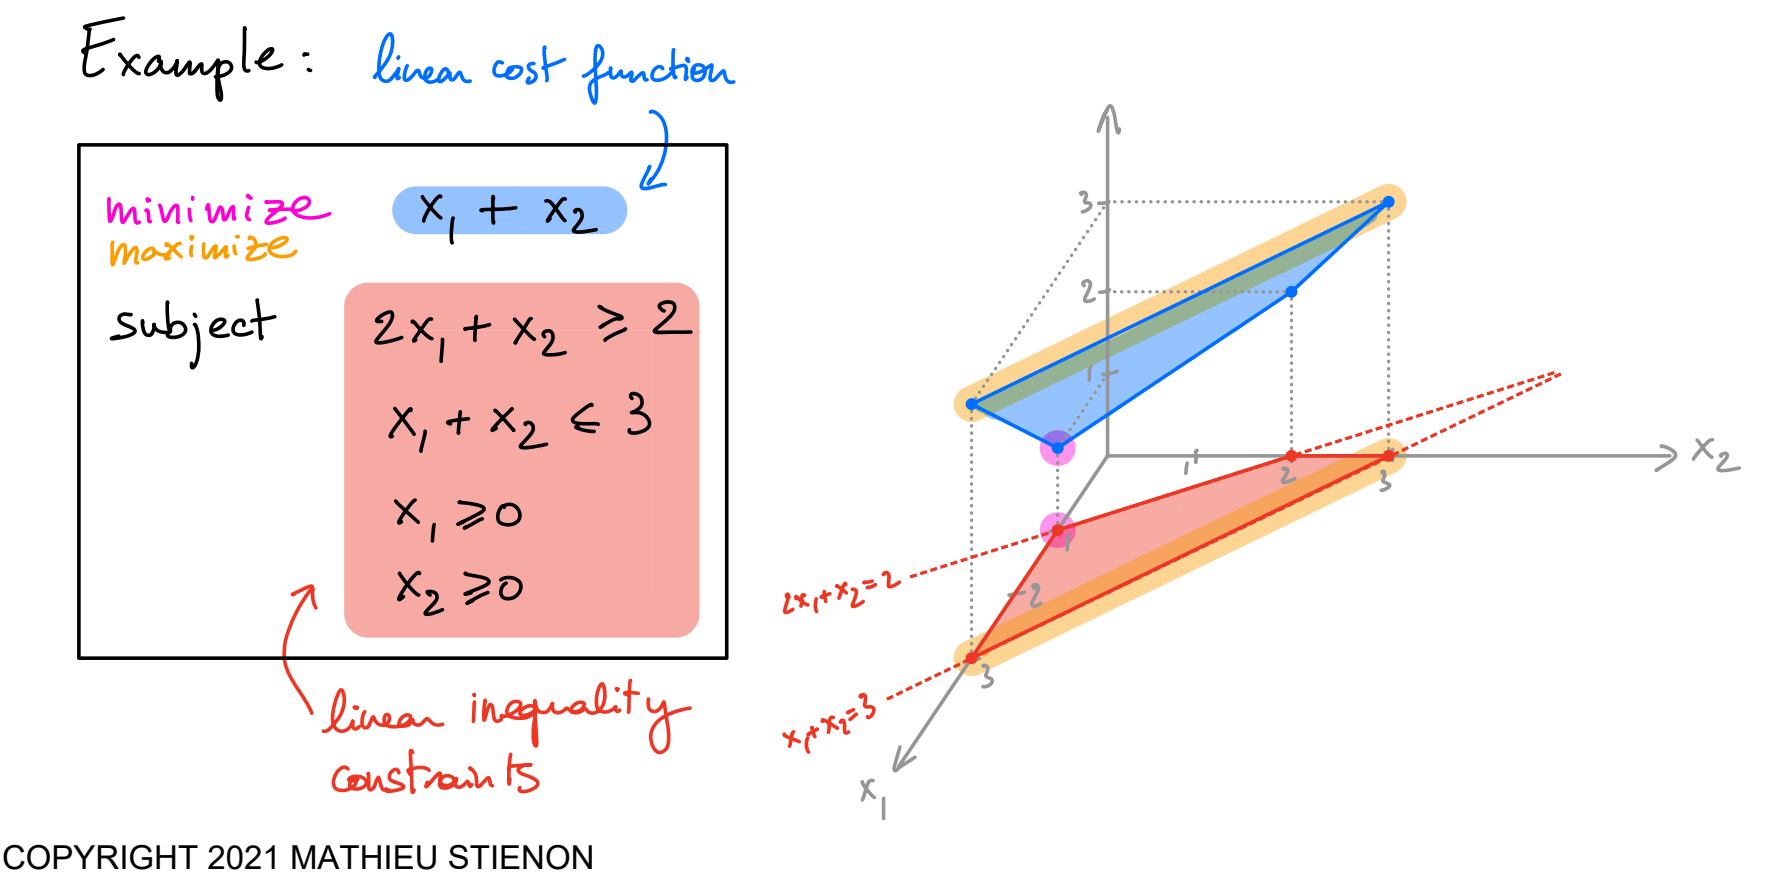 Example: linear cost function
minimize x₁ + x₂
maximize
subject 2x₁ + x₂ ⩾ 2
x₁ + x₂ ⩽ 3
x₁ ⩾ 0
x₂ ⩾ 0
linear inequality
constraints
3
2
1
1
2
3
x₂
1
2
3
x₁
2x₁+x₂=2
x₁+x₂=3
COPYRIGHT 2021 MATHIEU STIENON